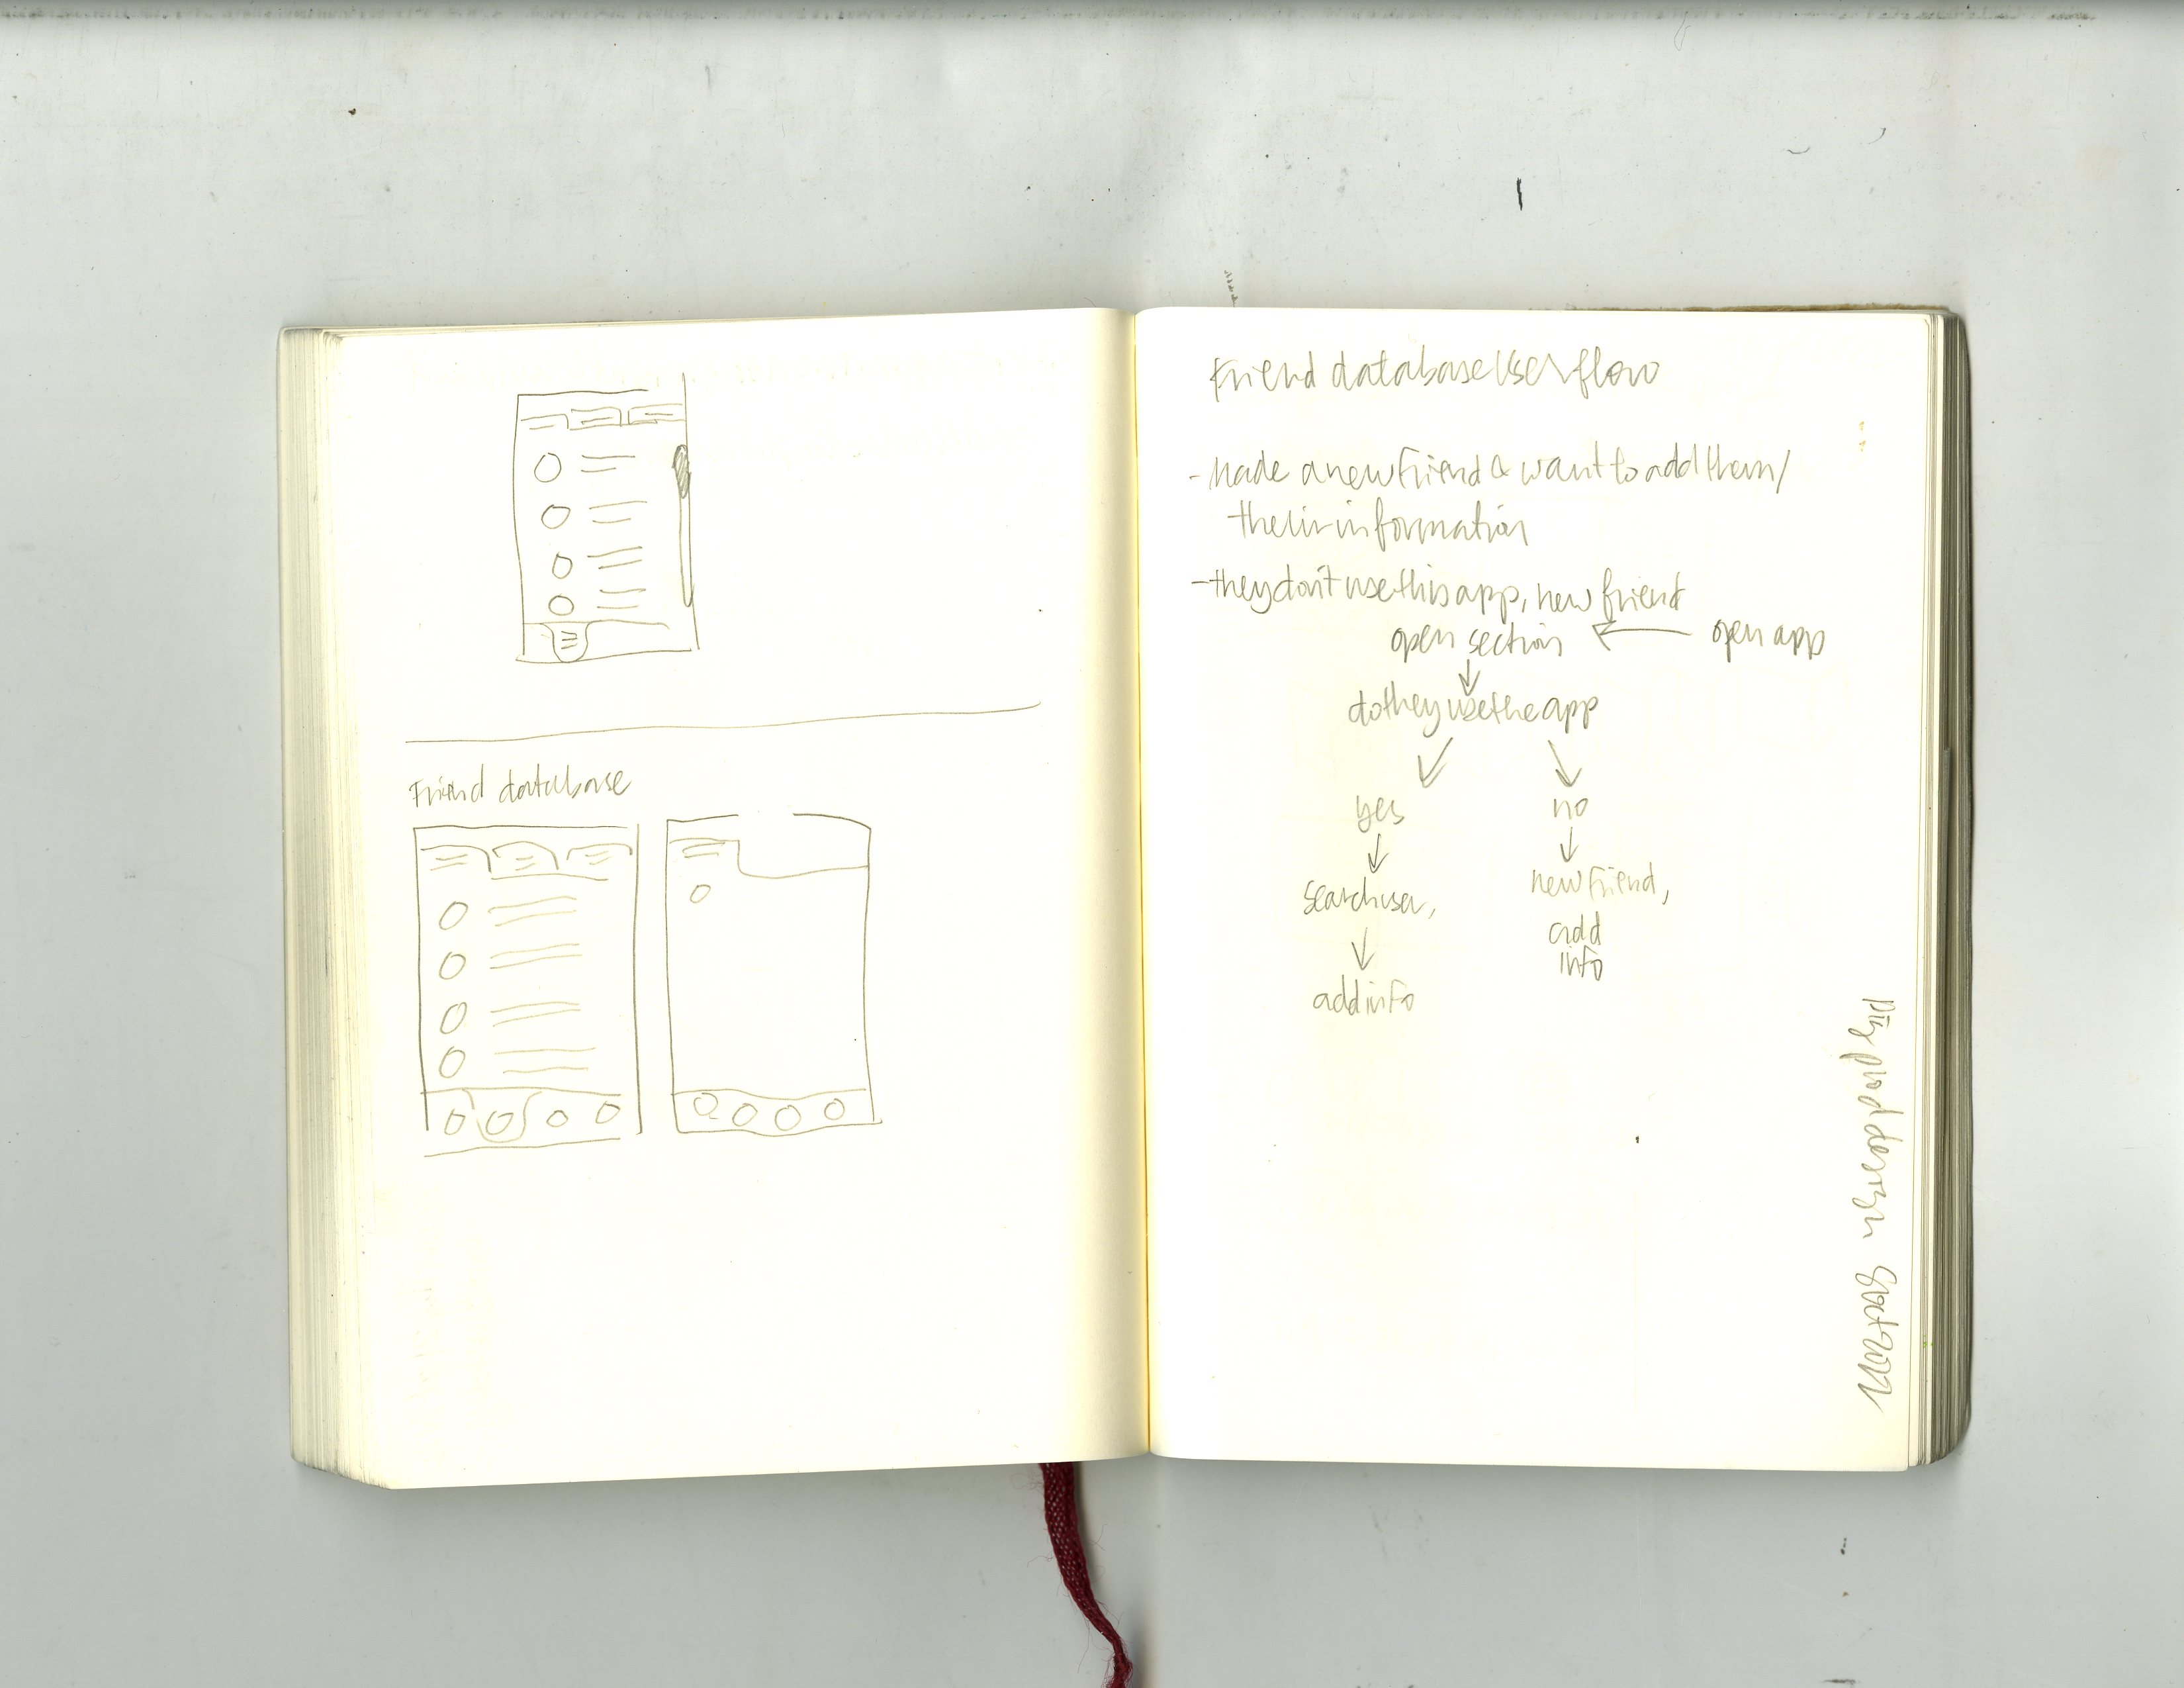 Friend database
Friend database User flow
- Made a new friend & want to add them/
their information
- they don't use this app, new friend
open section ← open app
do they use the app
yes
no
search user,
new friend,
add
info
add info
Digi prod design 8 oct 2022